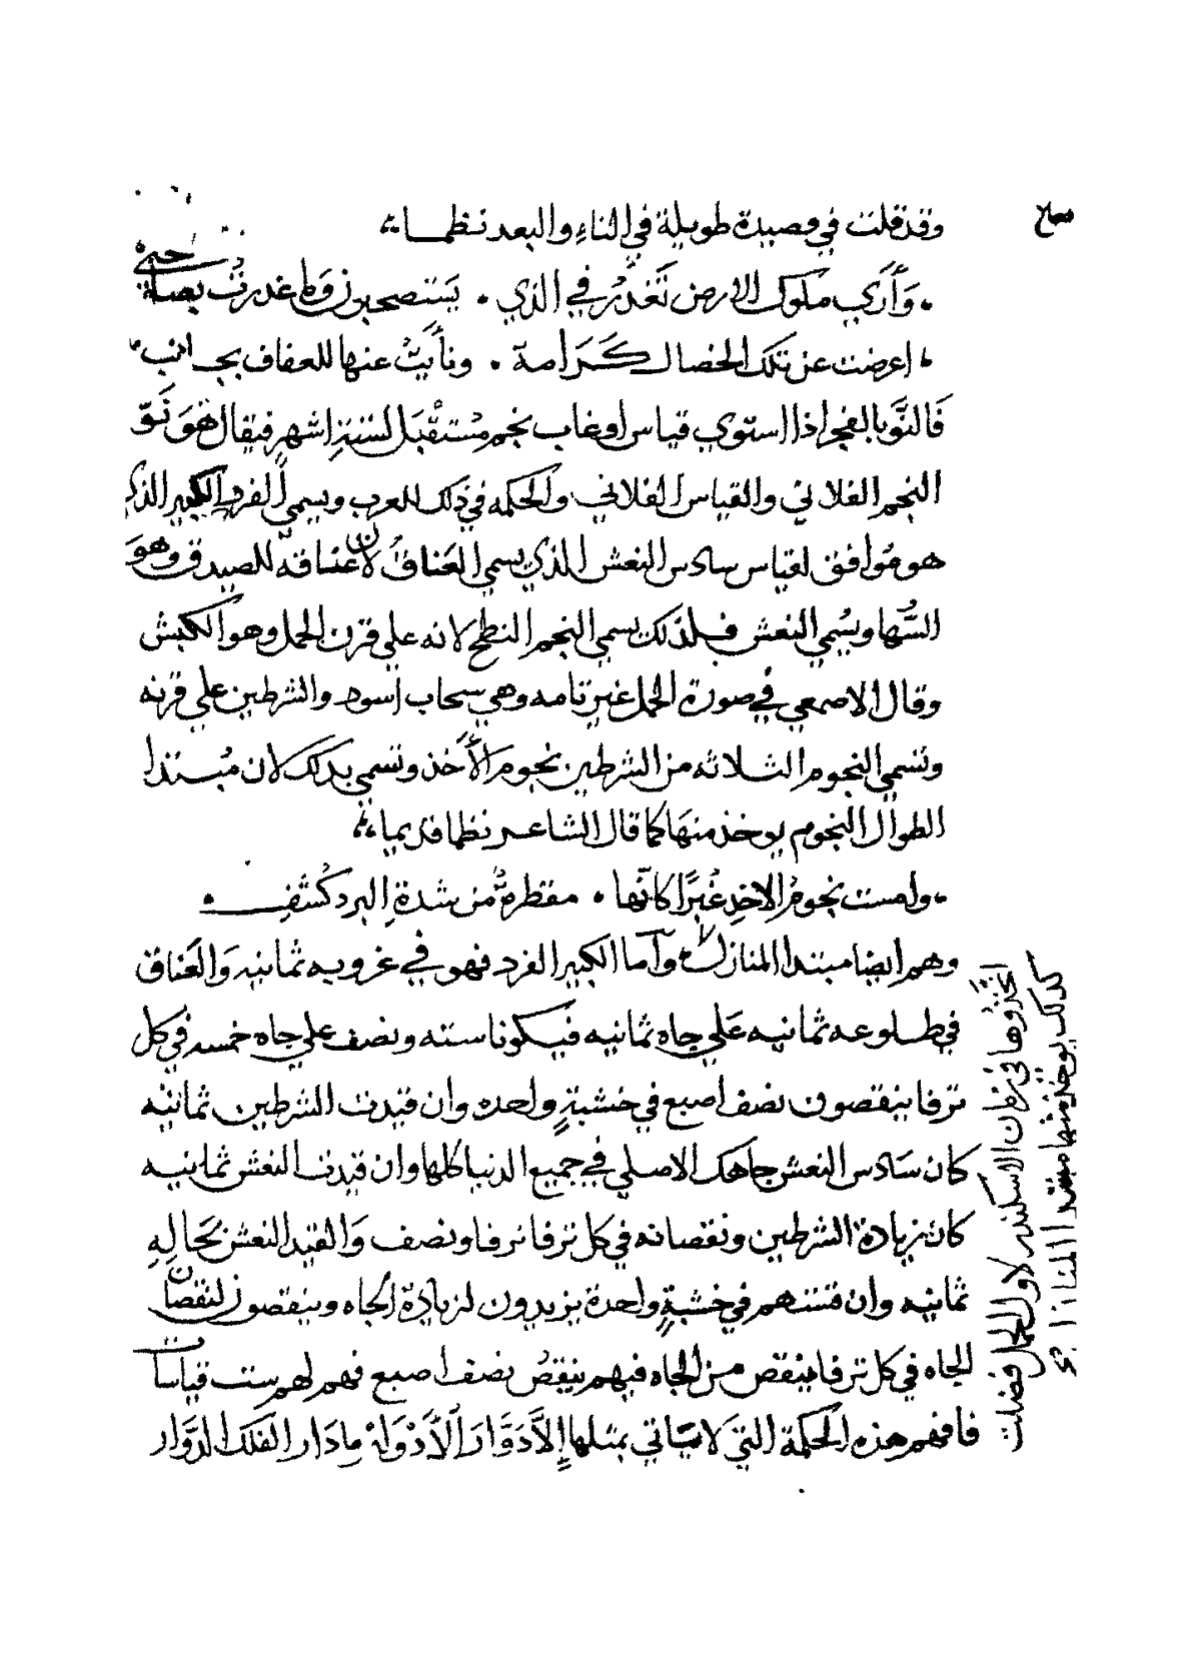 وقد قلت في قصيدة طويلة في الناء والبعد نظمـــا
وَأَرَي ملوك الارض تَغدُر في الذي • يَستصحبون وما غدرت بصاحبي
اعرضت عن تلك الخصال كَـرَامة • ونأيتُ عنها للعفاف بجـانب
فَالنَّو بالفجر اذا استوي قياس او غاب نجم مُستقْبَل لستة اشهر فيقال هَو نَوّ
النجم الفلاني والقياس الفلاني والحكمه في ذلك للعرب ويسمي الفرد الكبير الذي
هو مُوافق لقياس سادس النعش الذي يسمي العَناق لان عناقه للصيدق وهوَ
السُّها ويُسمي النعش فلذلك يسمي النجم النطح لانه علي قرن الحمل وهو الكبش
وقال الاصمعي في صورة الحمل غير تامه وهي سحاب اسود والشرطين علي قرنه
وتسمي النجوم الثلاثه من الشرطين نجوم الأَخذ وتسمي بذلك لان مُبتدا
الطوال النجوم يوخذ منهَا كما قال الشاعـر نظما قديما
ولمست نجومُ الاخذِ غُبرًا كانّها • مقطرةٌ من شدةِ البرد كُشَّفِ •
وهم ايضا مبتدا المنازل وأما الكبير الفرد فهو في غروبه ثمانيه وَالعَناق
في طلوعه ثمانيه عَلي جاه ثمانيه فيكونا سته ونصف علي جاه خمسه في كل
ترفا ينقصون نصف اصبع في خشبةٍ واحده وان قيدت الشرطين ثمانيه
كان سَادس النعش جاهك الاصلي في جميع الدنيا كلها وان قيدت النعش ثمانيه
كان زيادة الشرطين ونقصانه في كل ترفا ترفا ونصف وَالقيد النعش بحَالِهِ
ثمانيه وان قستهم في خشبةٍ واحدة يزيدون لزيادة الجاه وينقصون لنقصان
الجاه في كل ترفا ينقص من الجاه فيهم ينقصُ نصف اصبع فهم لهم ست قياسات
فافهم هذه الحكمة التيَ لا ياتي بمثلها إلاَّ دَوَّار الأَدْوَار ما دَار الفلك الدَّوَّار
فى زمان الاسكندر لاول الحمل فصلت
كذلك يوخذ منها مبتدا المنازل